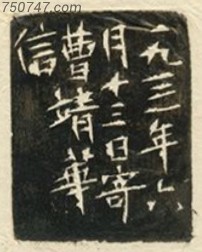 750747.com
一九三一年六
月十三日寄
曹靖華
信